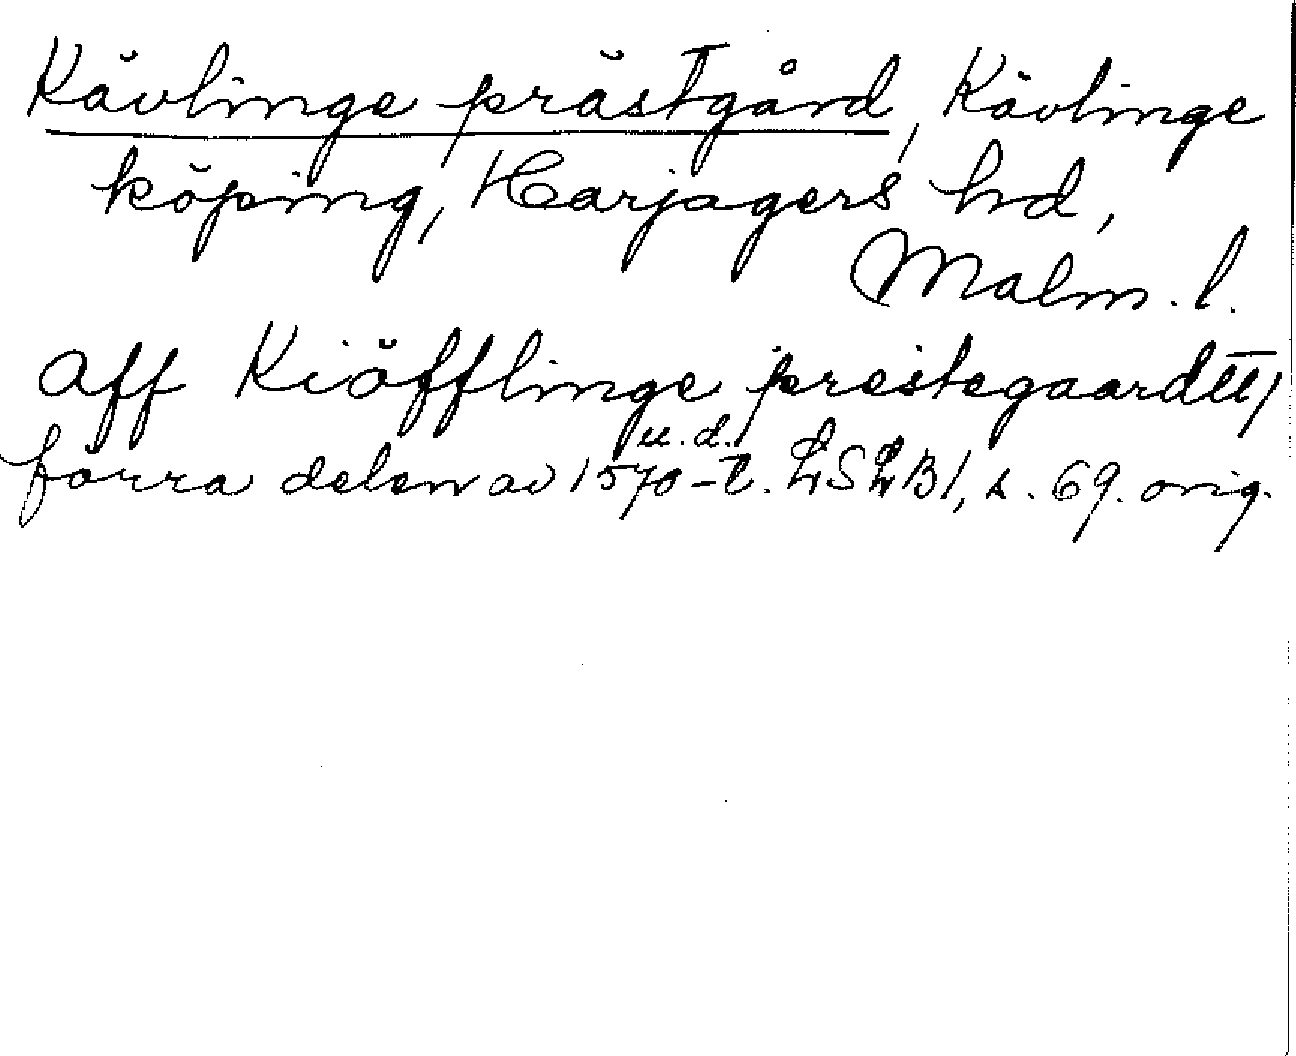 Kävlinge prästgård, Kävlinge
köping, Harjagers hd,
Malm. l.
aff Kiöfflinge prestegaardtt,
u. d.
förra delen av 1570-t. LSLB 1, s. 69. orig.